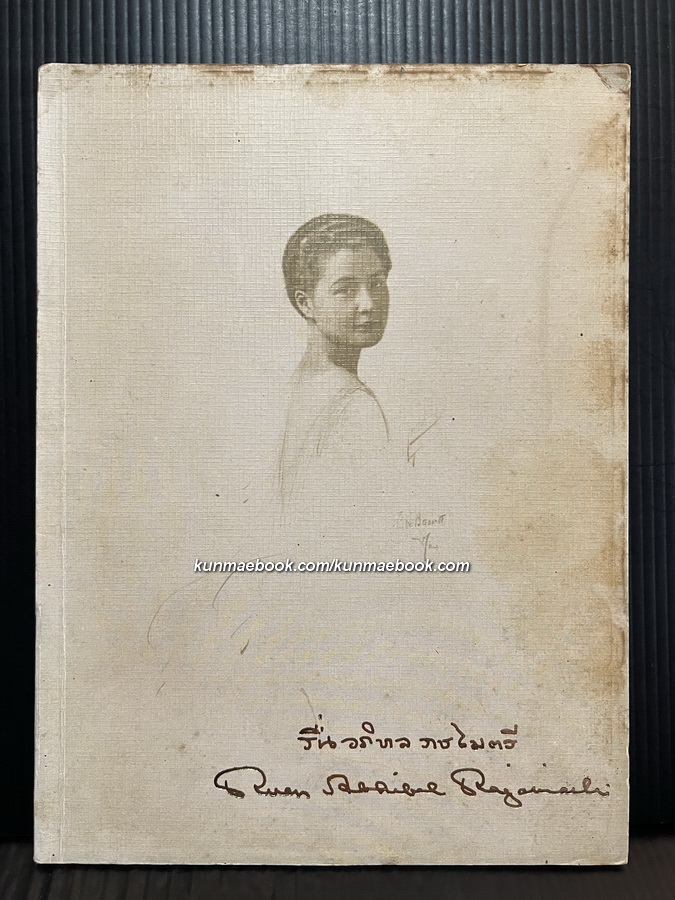 kunmaebook.com/kunmaebook.com
รื่น อภิบาล ราชไมตรี
Ruen Abhibal Rajamaitri